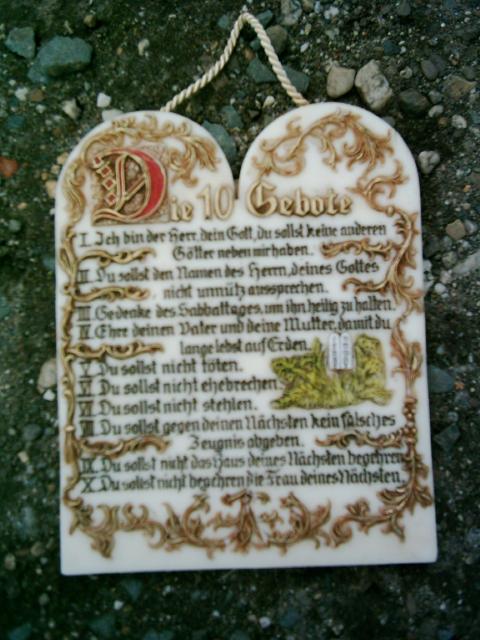 Die 10 Gebote
I. Ich bin der Herr, dein Gott, du sollst keine anderen
Götter neben mir haben.
II. Du sollst den Namen des Herrn, deines Gottes
nicht unnütz aussprechen.
III. Gedenke des Sabbattages, um ihn heilig zu halten.
IV. Ehre deinen Vater und deine Mutter, damit du
lange lebst auf Erden.
V. Du sollst nicht töten.
VI. Du sollst nicht ehebrechen.
VII. Du sollst nicht stehlen.
VIII. Du sollst gegen deinen Nächsten kein falsches
Zeugnis abgeben.
IX. Du sollst nicht das Haus deines Nächsten begehren
X. Du sollst nicht begehren die Frau deines Nächsten.